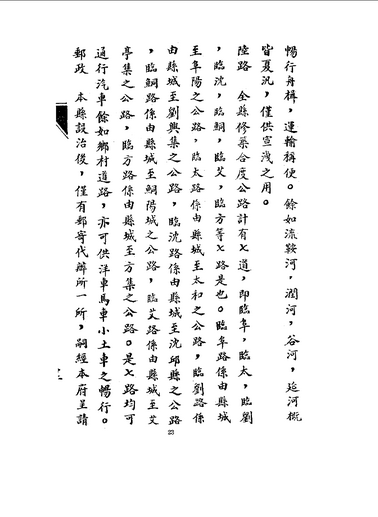 暢行舟楫，運輸稱便。餘如流鞍河，潤河，谷河，延河概
皆夏汎，僅供宣洩之用。
陸路　全縣修築合度公路計有七道，即臨阜，臨太，臨劉
，臨沈，臨鮦，臨艾，臨方等七路是也。臨阜路係由縣城
至阜陽之公路，臨太路係由縣城至太和之公路，臨劉路係
由縣城至劉興集之公路，臨沈路係由縣城至沈邱縣之公路
，臨鮦路係由縣城至鮦陽城之公路，臨艾路係由縣城至艾
亭集之公路，臨方路係由縣城至方集之公路。是七路均可
通行汽車餘如鄉村道路，亦可供洋車馬車小土車之暢行。
郵政　本縣設治後，僅有郵寄代辦所一所，嗣經本府呈請
23